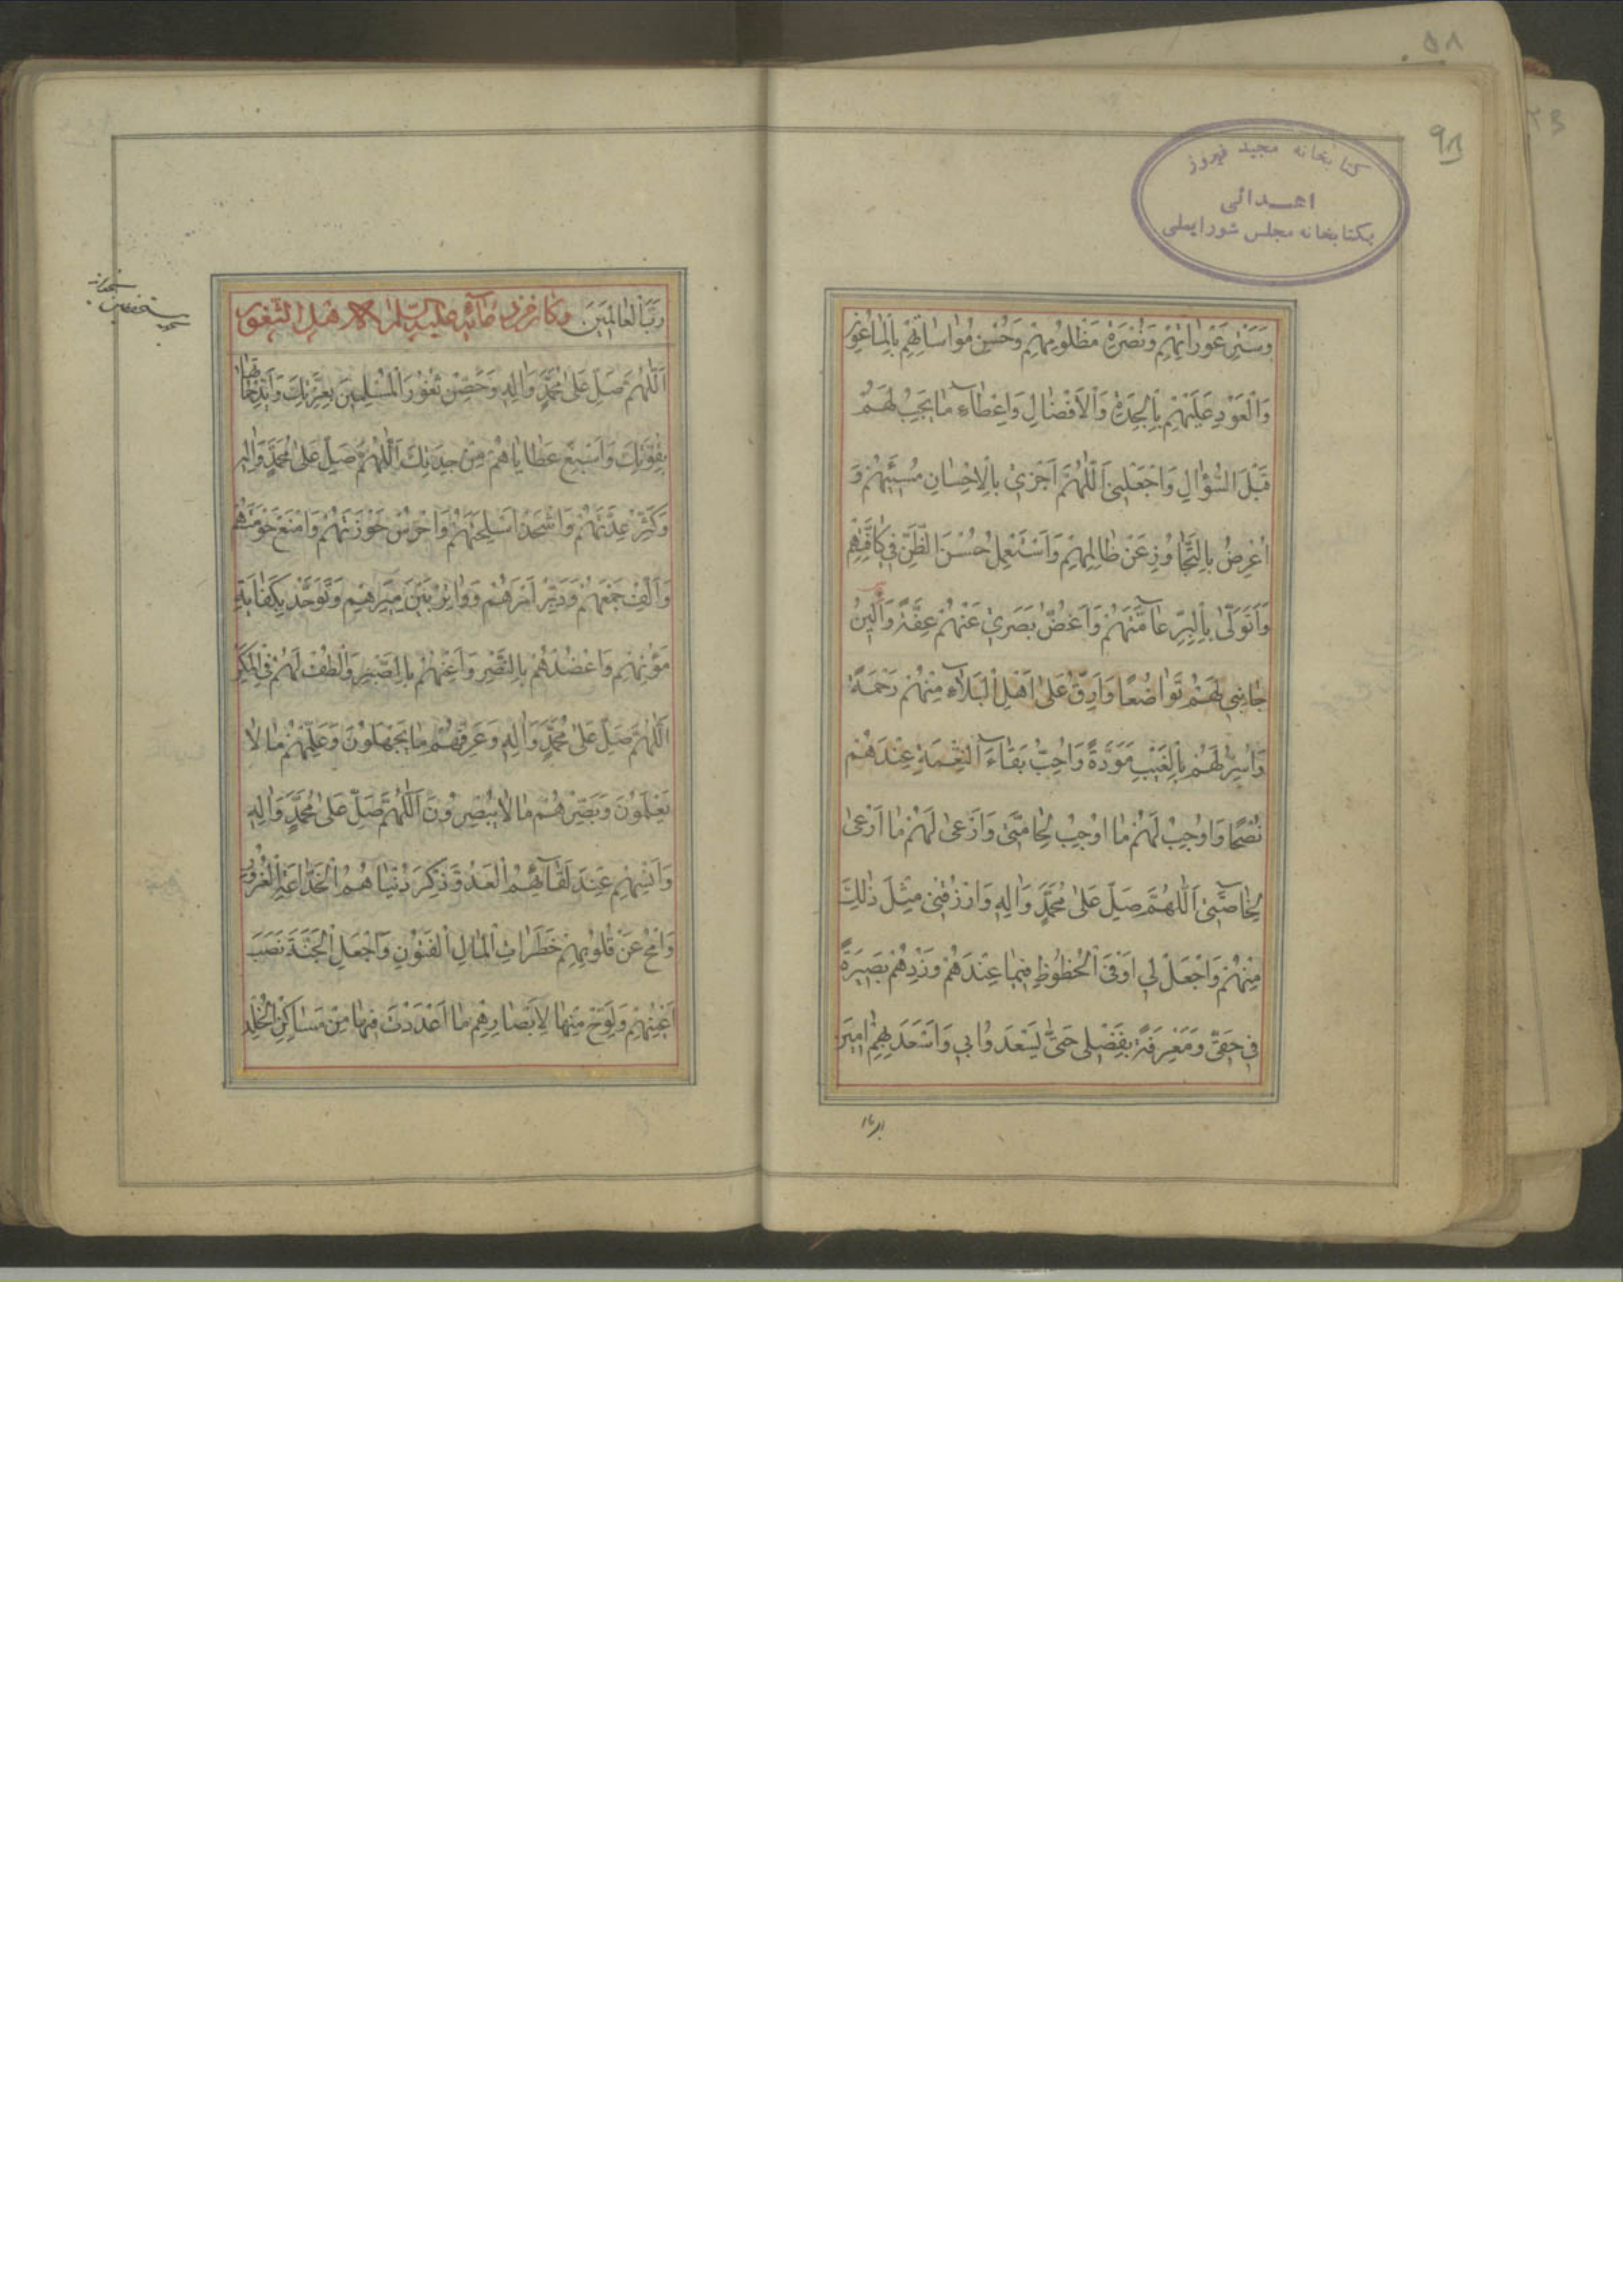 ۵۸
۹۸
کتابخانه مجید فیروز
اهدائی
بکتابخانه مجلس شورایملی
وَسَتْرِ عَوْراتِهِمْ وَنُصْرَةِ مَظْلُومِهِمْ وَحُسْنِ مُواساتِهِمْ بِالْماعُونِ
وَالْعَوْدِ عَلَيْهِمْ بِالْجِدَةِ وَالْاَفْضالِ وَاِعْطآءِ ما يَجِبُ لَهُمْ
قَبْلَ السُّؤالِ وَاجْعَلْنِى اَللّٰهُمَّ اَجْزى بِالْاِحْسانِ مُسيئَهُمْ وَ
اُعْرِضُ بِالتَّجاوُزِ عَنْ ظالِمِهِمْ وَاَسْتَعْمِلُ حُسْنَ الظَّنِّ فى كافَّتِهِمْ
وَاَتَوَلّٰى بِالْبِرِّ عامَّتَهُمْ وَاَغُضُّ بَصَرى عَنْهُمْ عِفَّةً وَاُلينُ
جانِبى لَهُمْ تَواضُعًا وَاَرِقُّ عَلٰى اَهْلِ الْبَلآءِ مِنْهُمْ رَحْمَةً
وَاُسِرُّ لَهُمْ بِالْغَيْبِ مَوَدَّةً وَاُحِبُّ بَقآءَ النِّعْمَةِ عِنْدَهُمْ
نُصْحًا وَاُوجِبُ لَهُمْ ما اُوجِبُ لِحامَّتى وَاَرْعٰى لَهُمْ ما اَرْعٰى
لِخاصَّتى اَللّٰهُمَّ صَلِّ عَلٰى مُحَمَّدٍ وَاٰلِهِ وَارْزُقْنى مِثْلَ ذٰلِكَ
مِنْهُمْ وَاجْعَلْ لى اَوْفَى الْحُظُوظِ فيما عِنْدَهُمْ وَزِدْهُمْ بَصيرَةً
فى حَقّى وَمَعْرِفَةً بِفَضْلى حَتّٰى يَسْعَدُوا بى وَاَسْعَدَ بِهِمْ اٰمينَ
رَبَّ الْعالَمينَ وَكانَ مِنْ دُعآئِهِ عَلَيْهِ السَّلامُ لِاَهْلِ الثُّغُورِ
اَللّٰهُمَّ صَلِّ عَلٰى مُحَمَّدٍ وَاٰلِهِ وَحَصِّنْ ثُغُورَ الْمُسْلِمينَ بِعِزَّتِكَ وَاَيِّدْ حُماتَها
بِقُوَّتِكَ وَاَسْبِغْ عَطاياهُمْ مِنْ جِدَتِكَ اَللّٰهُمَّ صَلِّ عَلٰى مُحَمَّدٍ وَاٰلِهِ
وَكَثِّرْ عِدَّتَهُمْ وَاشْحَذْ اَسْلِحَتَهُمْ وَاحْرُسْ حَوْزَتَهُمْ وَامْنَعْ حَوْمَتَهُمْ
وَاَلِّفْ جَمْعَهُمْ وَدَبِّرْ اَمْرَهُمْ وَواتِرْ بَيْنَ مِيَرِهِمْ وَتَوَحَّدْ بِكِفايَةِ
مُؤَنِهِمْ وَاعْضُدْهُمْ بِالنَّصْرِ وَاَعِنْهُمْ بِالصَّبْرِ وَالْطُفْ لَهُمْ فِى الْمَكْرِ
اَللّٰهُمَّ صَلِّ عَلٰى مُحَمَّدٍ وَاٰلِهِ وَعَرِّفْهُمْ ما يَجْهَلُونَ وَعَلِّمْهُمْ ما لا
يَعْلَمُونَ وَبَصِّرْهُمْ ما لا يُبْصِرُونَ اَللّٰهُمَّ صَلِّ عَلٰى مُحَمَّدٍ وَاٰلِهِ
وَاَنْسِهِمْ عِنْدَ لِقآئِهِمُ الْعَدُوَّ ذِكْرَ دُنْياهُمُ الْخَدّاعَةِ الْغَرُورِ
وَامْحُ عَنْ قُلُوبِهِمْ خَطَراتِ الْمالِ الْفَتُونِ وَاجْعَلِ الْجَنَّةَ نَصْبَ
اَعْيُنِهِمْ وَلَوِّحْ مِنْها لِاَبْصارِهِمْ ما اَعْدَدْتَ فيها مِنْ مَساكِنِ الْخُلْدِ